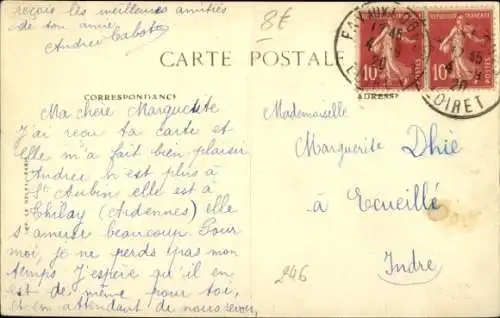 reçois les meilleures amitiés
de ton amie
Andrée Cabot
8€
CARTE POSTALE
CORRESPONDANCE
ADRESSE
Ma chère Marguerite
J'ai reçu ta carte et
elle m'a fait bien plaisir
Andrée n'est plus à
St Aubin elle est à
(Ardennes) elle
s'amuse beaucoup. Pour
moi, je ne perds pas mon
temps J'espère qu'il en
est de même pour toi,
et en attendant de nous revoir,
Mademoiselle
Marguerite Dhié
à Ecueillé
Indre
246
10 10
LOIRET